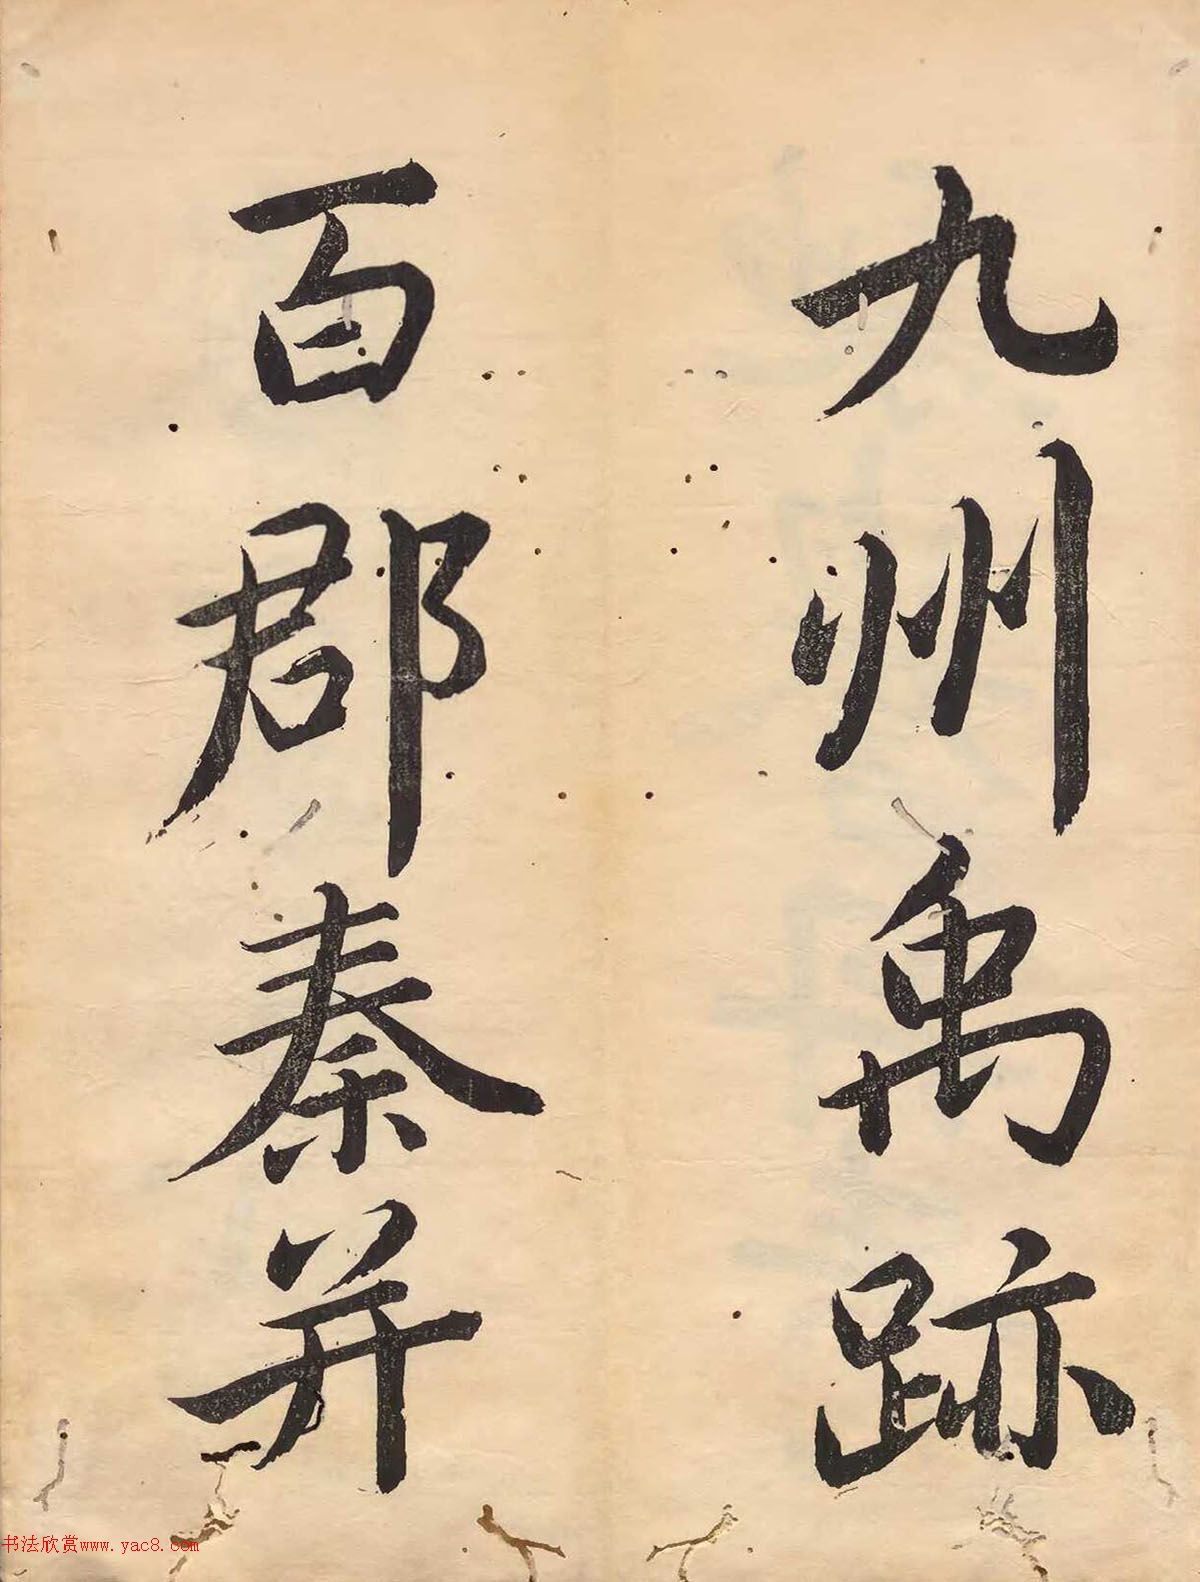 九州禹跡
百郡秦并
书法欣赏www.yac8.com